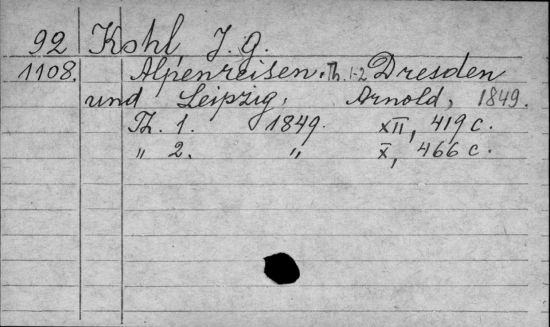 92 Kohl, J. G.
1108. Alpenreisen. Th. 1-2 Dresden
und Leipzig, Arnold, 1849.
Th. 1. 1849. XII, 419 c.
" 2. " X, 466 c.